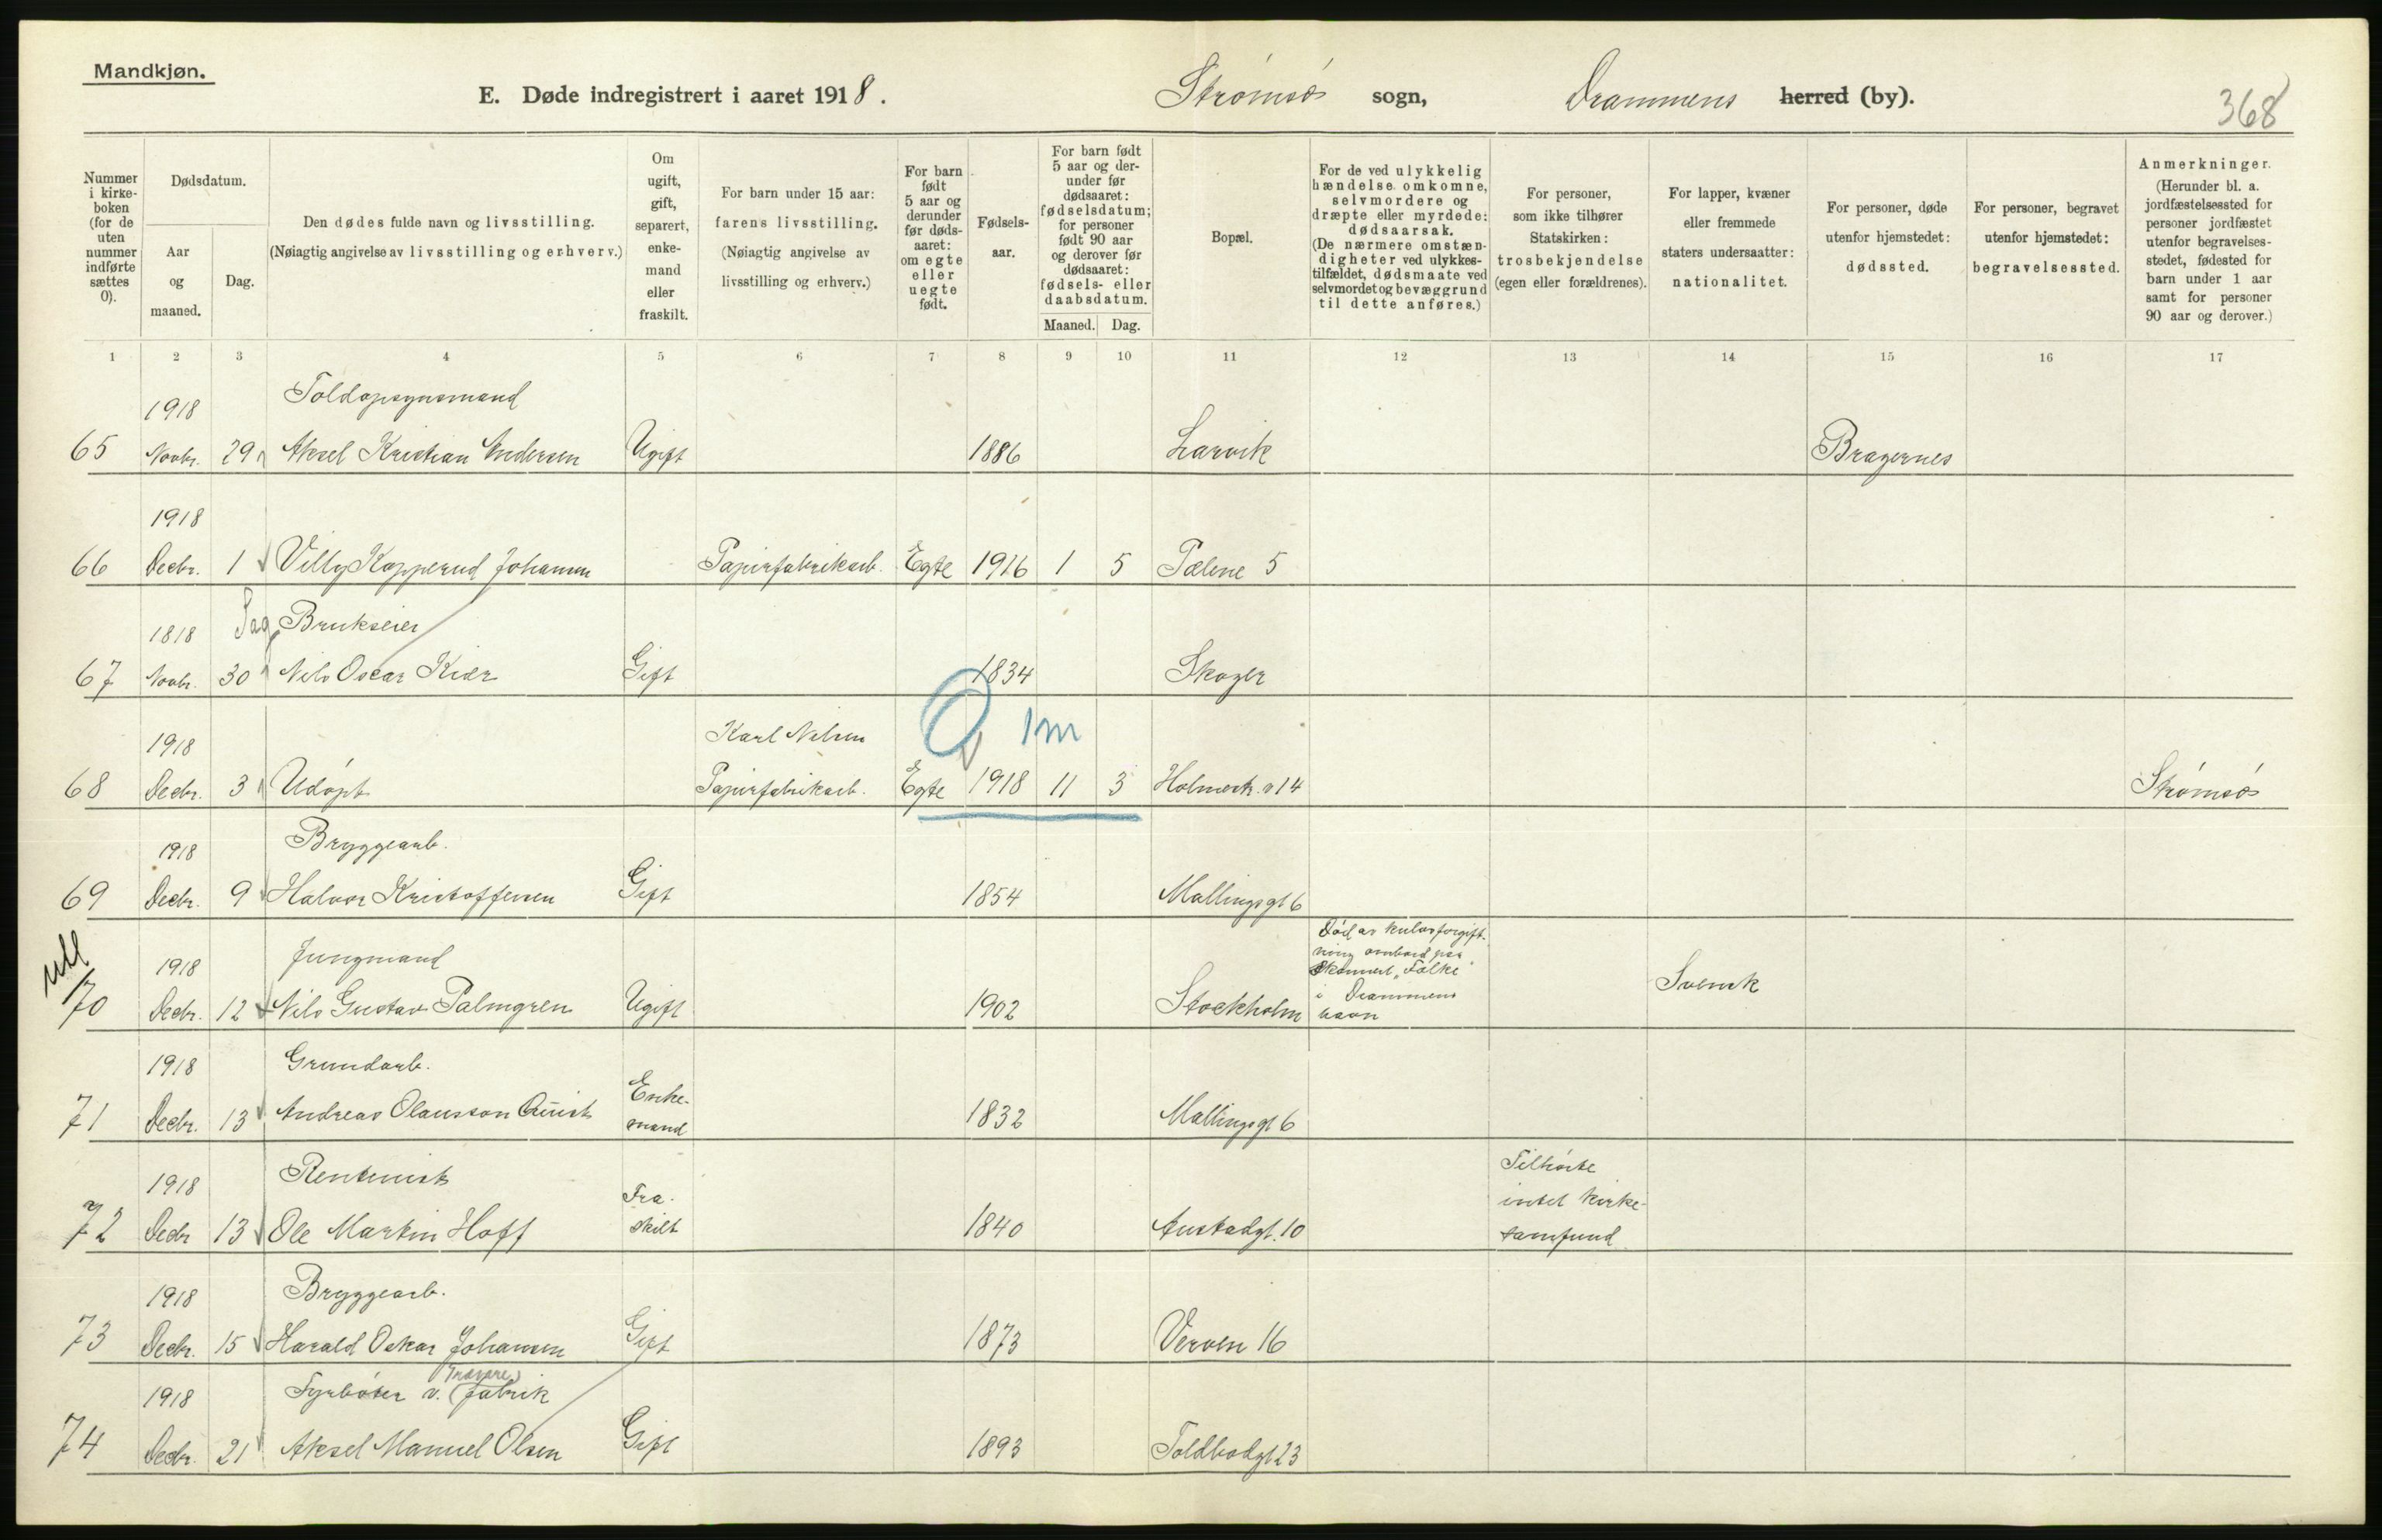 Mandkjøn.
E. Døde indregistrert i aaret 1918.
Strømsø sogn,
Drammens herred (by).
368
Nummer i kirkeboken (for de uten nummer indførte sættes 0).
Dødsdatum.
Aar og maaned.
Dag.
Den dødes fulde navn og livsstilling.
(Nøiagtig angivelse av livsstilling og erhverv.)
Om ugift, gift, separert, enkemand eller fraskilt.
For barn under 15 aar:
farens livsstilling.
(Nøiagtig angivelse av livsstilling og erhverv.)
For barn født 5 aar og derunder før dødsaaret: om egte eller uegte født.
Fødselsaar.
For barn født 5 aar og derunder før dødsaaret: fødselsdatum; for personer født 90 aar og derover før dødsaaret: fødsels- eller daabsdatum.
Maaned. Dag.
Bopæl.
For de ved ulykkelig hændelse omkomne, selvmordere og dræpte eller myrdede: dødsaarsak.
(De nærmere omstændigheter ved ulykkestilfældet, dødsmaate ved selvmordet og bevæggrund til dette anføres.)
For personer, som ikke tilhører Statskirken: trosbekjendelse (egen eller forældrenes).
For lapper, kvæner eller fremmede staters undersaatter: nationalitet.
For personer, døde utenfor hjemstedet: dødssted.
For personer, begravet utenfor hjemstedet: begravelsessted.
Anmerkninger.
(Herunder bl. a. jordfæstelsessted for personer jordfæstet utenfor begravelsesstedet, fødested for barn under 1 aar samt for personer 90 aar og derover.)
1 2 3 4 5 6 7 8 9 10 11 12 13 14 15 16 17
1918 Toldopsynsmand
65 Novbr. 29 Aksel Kristian Andersen Ugift 1886 Larvik Bragernes
1918
66 Decbr. 1 Villy Kopperud Johansen Papirfabrikarb. Egte 1916 1 5 Pælene 5
1818 Sag Brukseier
67 Novbr. 30 Nils Oscar Kiær Gift 1834 Skoger
1918 Karl Nilsen 1m
68 Decbr. 3 Udøpt Papirfabrikarb. Egte 1918 11 3 Holmestr.v 14 Strømsø
1918 Bryggearb.
69 Decbr. 9 Halvor Kristoffersen Gift 1854 Mallingsgt 6
utl
1918 Jungmand
70 Decbr. 12 Nils Gustav Palmgren Ugift 1902 Stockholm
Død av kulosforgift-
ning ombord paa
Skonnert "Falke"
i Drammens
havn
Svensk
1918 Grundarb.
71 Decbr. 13 Andreas Olausson Qvist Enke-
mand 1832 Mallingsgt 6
1918 Rentenist
72 Decbr 13 Ole Martin Hoff Fra-
skilt 1840 Austadgt. 10
Tilhørte
intet kirke-
samfund
1918 Bryggearb.
73 Decbr. 15 Harald Oskar Johansen Gift 1873 Verven 16
Trævare
1918 Fyrbøter v. fabrik
74 Decbr. 21 Aksel Manuel Olsen Gift 1893 Toldbodgt 23